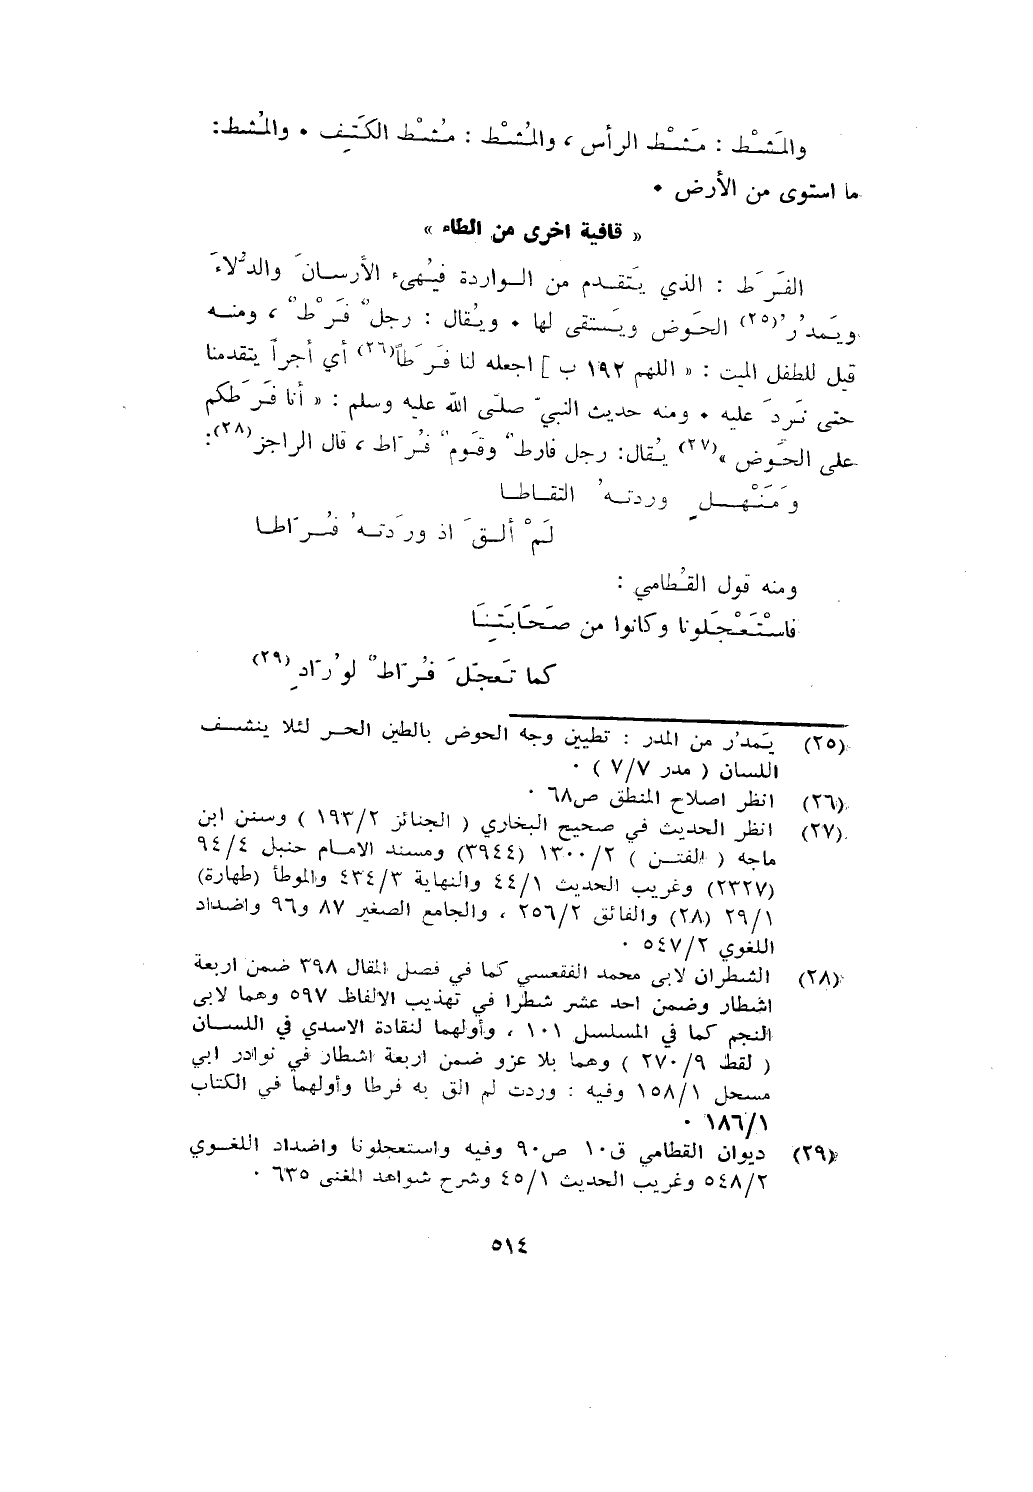 والمَشْط : مَشْط الرأس ، والمُشْط : مُشْط الكَتِف ٠ والمُشط:
ما استوى من الأرض ٠
« قافية اخرى من الطاء »
الفَرَط : الذي يَتقدم من الواردة فيُهيء الأرسانَ والدِّلاءَ
ويَمدُر(٢٥) الحَوض ويَستقى لها ٠ ويُقال : رجلٌ فَرَطٌ ، ومنه
قيل للطفل الميت : « اللهم ١٩٢ ب ] اجعله لنا فَرَطاً(٢٦) أي أجراً يتقدمنا
حتى نَرِدَ عليه ٠ ومنه حديث النبيّ صلّى الله عليه وسلم : « أنا فَرَطكم
على الحَوض »(٢٧) يُقال: رجل فارطٌ وقَومٌ فُرّاط ، قال الراجز(٢٨):
وَمَنْهلٍ وردتهُ التقاطا
لَمْ ألقَ اذ ورَدتهُ فُرّاطا
ومنه قول القُطامي :
فاسْتَعْجَلونا وكانوا من صَحَابَتِنَا
كما تَعجّلَ فُرّاطٌ لوُرّادِ(٢٩)
(٢٥) يَمدُر من المدر : تطيين وجه الحوض بالطين الحر لئلا ينشف
اللسان ( مدر ٧/٧ ) ٠
(٢٦) انظر اصلاح المنطق ص٦٨ ٠
(٢٧) انظر الحديث في صحيح البخاري ( الجنائز ١٩٣/٢ ) وسنن ابن
ماجه ( الفتن ) ١٣٠٠/٢ (٣٩٤٤) ومسند الامام حنبل ٩٤/٤
(٢٣٢٧) وغريب الحديث ٤٤/١ والنهاية ٤٣٤/٣ والموطأ (طهارة)
٢٩/١ (٢٨) والفائق ٢٥٦/٢ ، والجامع الصغير ٨٧ و٩٦ واضداد
اللغوي ٥٤٧/٢ ٠
(٢٨) الشطران لابى محمد الفقعسي كما في فصل المقال ٣٩٨ ضمن اربعة
اشطار وضمن احد عشر شطرا في تهذيب الالفاظ ٥٩٧ وهما لابى
النجم كما في المسلسل ١٠١ ، وأولهما لنقادة الاسدي في اللسان
( لقط ٢٧٠/٩ ) وهما بلا عزو ضمن اربعة اشطار في نوادر ابي
مسحل ١٥٨/١ وفيه : وردت لم الق به فرطا وأولهما في الكتاب
١٨٦/١ ٠
(٢٩) ديوان القطامي ق١٠ ص٩٠ وفيه واستعجلونا واضداد اللغوي
٥٤٨/٢ وغريب الحديث ٤٥/١ وشرح شواهد المغنى ٦٣٥ ٠
٥١٤